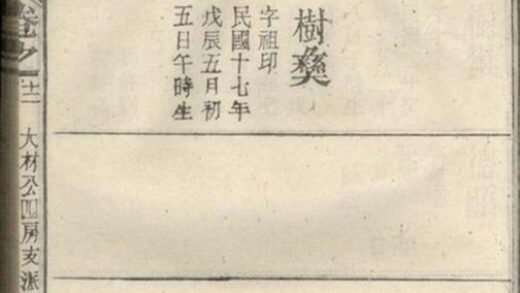 樹彝
字祖印
民國十七年
戊辰五月初
五日午時生
大材公四房支派